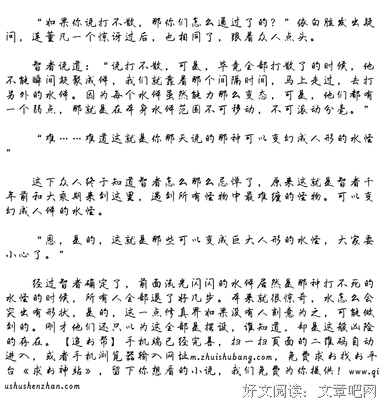 “如果你说打不散，那你们怎么通过了的？”依白胜发出疑
问，连董凡一个惊讶过后，也相同了，跟着众人点头。
智者说道：“说打不散，可是，毕竟全部打散了的时候，他
不能瞬间凝聚成体，我们就靠着那个间隔时间，马上走过，去打
另外的水体。因为每个水体虽然能力那么变态，可是，他们都有
一个弱点，那就是在本身水体范围不可移动，不可滚动分毫。”
“难……难道这就是你那天说的那种可以变幻成人形的水怪
”
这下众人终于知道智者怎么那么忌惮了，原来这就是智者千
年前和大乘期来到这里，遇到所有怪物中最难缠的怪物。可以变
幻成人体的水怪。
“恩，是的，这就是那些可以变成巨大人形的水怪，大家要
小心了。”
经过智者确定了，前面流光闪闪的水体居然是那种打不死的
水怪的时候，所有人全部退了好几步。本来就很惊奇，水怎么会
突出有形状，是的，这一点修真界如果没有人刻意为之，可能做
到的。刚才他们还只以为这全部是摆设，谁知道，却是这般凶险
的存在。【追书帮】手机端已经完善，扫一扫页面的二维码自动
进入，或者手机浏览器输入网址m.zhuishubang.com，免费求书找书平
台《求书神站》，留下你想看的小说，我们免费为你提供！www.qi
ushushenzhan.com
好文阅读：文章吧网